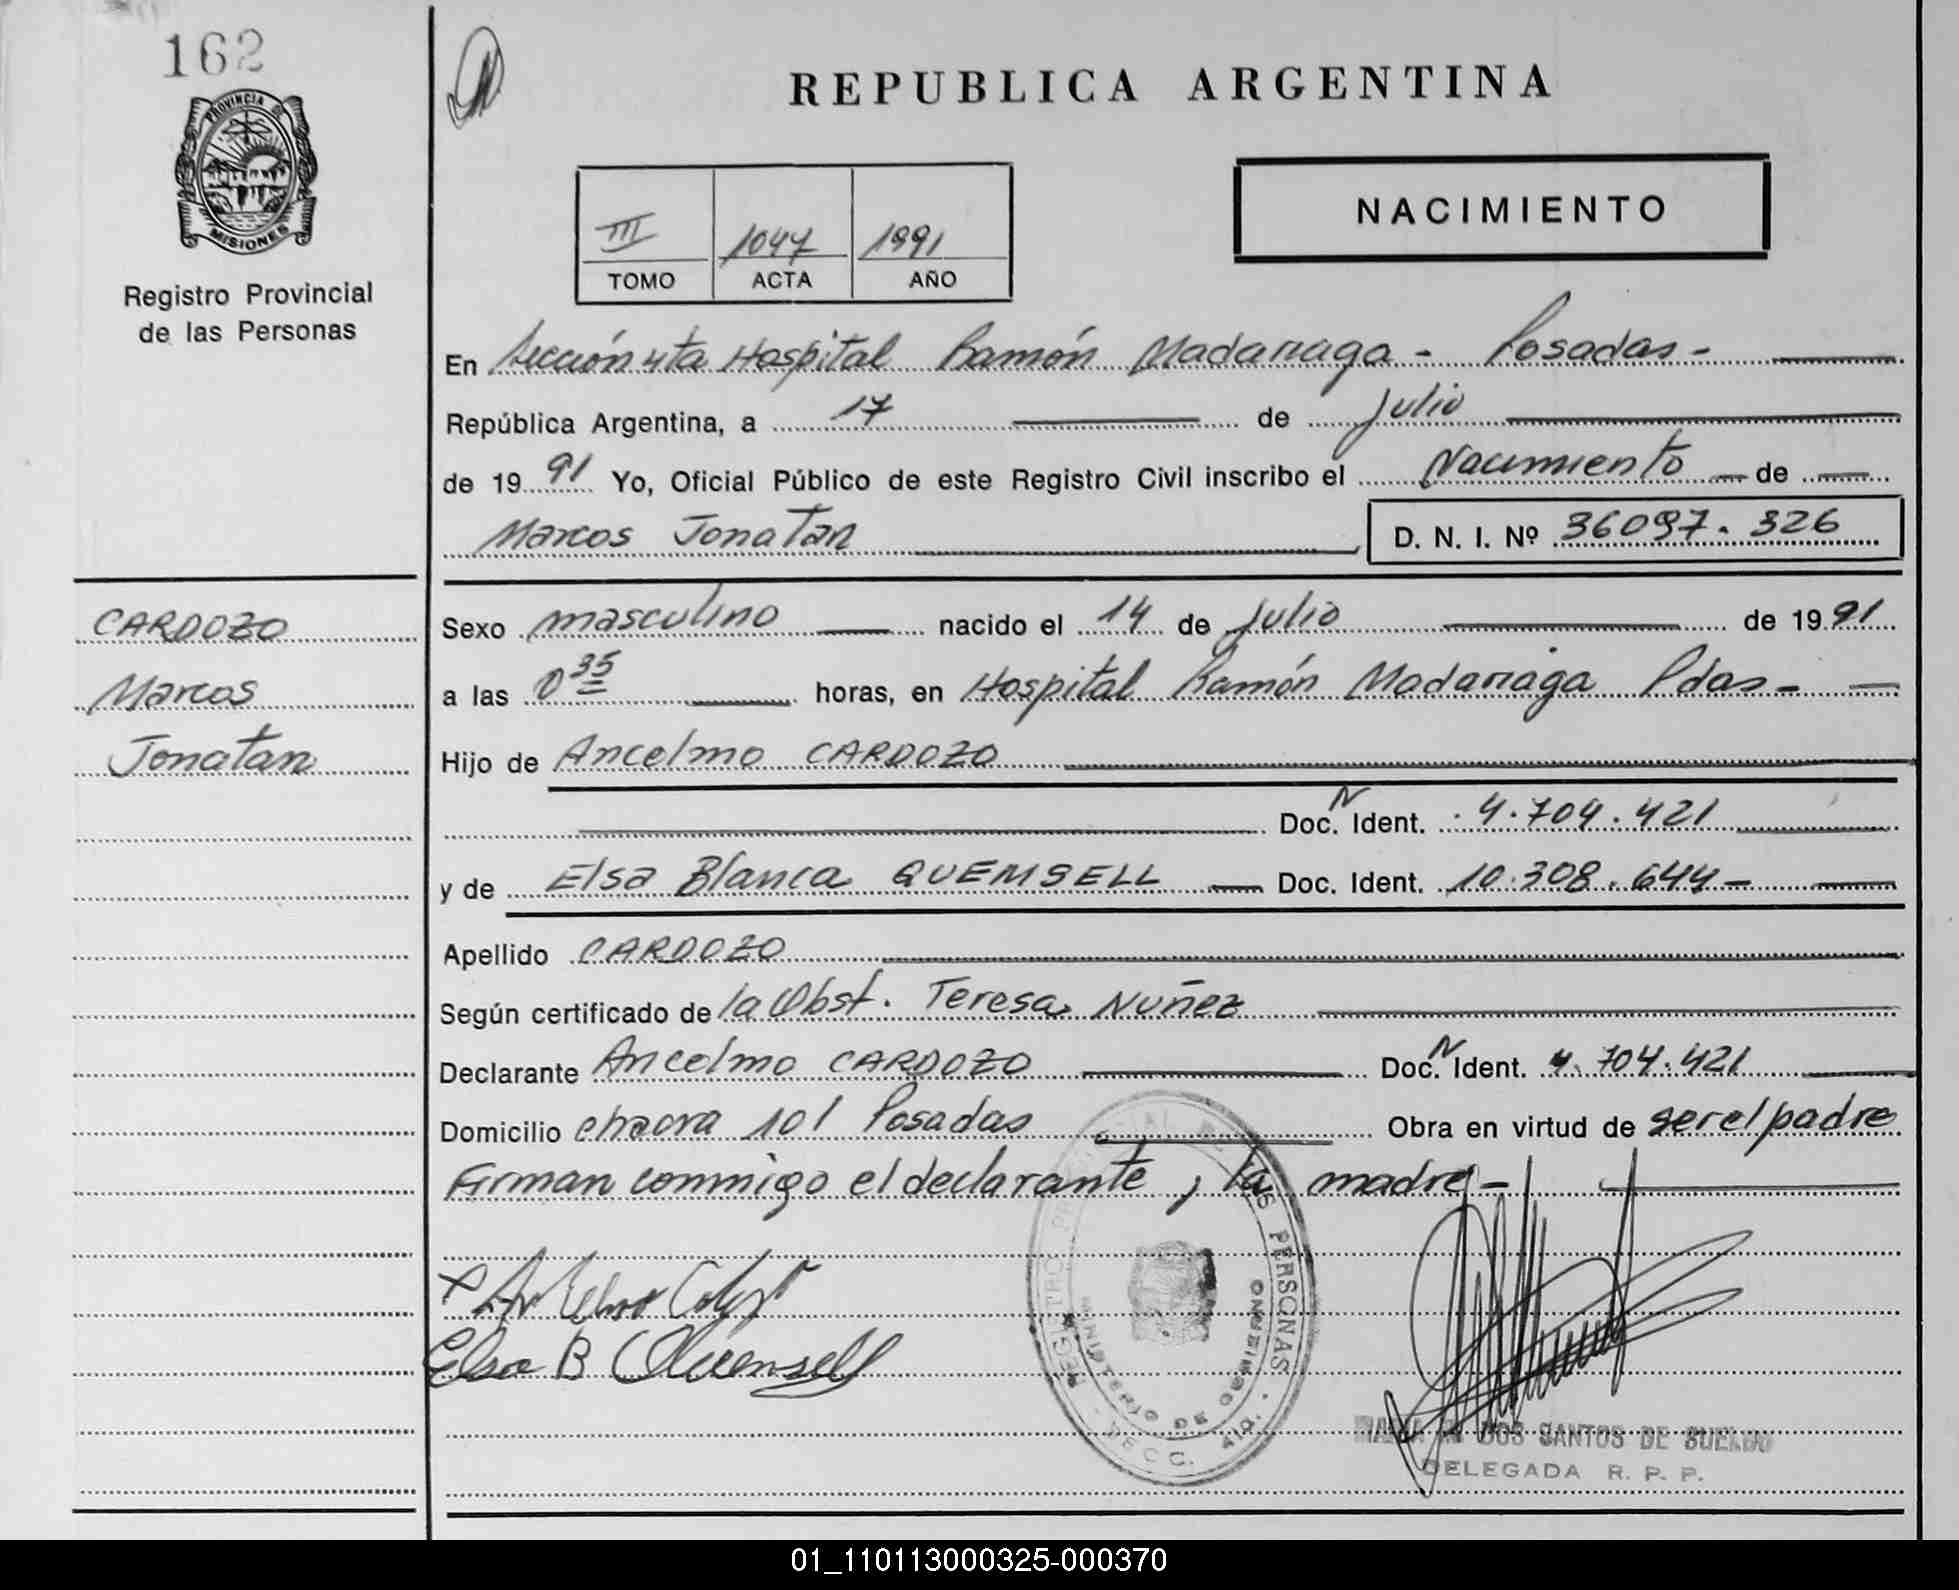 162
PROVINCIA DE
MISIONES
Registro Provincial
de las Personas
REPUBLICA ARGENTINA
III 1047 1991
TOMO ACTA AÑO
NACIMIENTO
En Sección 4ta Hospital Ramón Madariaga - Posadas -
República Argentina, a 17 de Julio
de 1991 Yo, Oficial Público de este Registro Civil inscribo el Nacimiento de
Marcos Jonatan D. N. I. Nº 36097.326
CARDOZO
Marcos
Jonatan
Sexo masculino nacido el 14 de Julio de 1991
a las 0 35 horas, en Hospital Ramón Madariaga Pdas -
Hijo de Ancelmo CARDOZO
Doc. N Ident. 4.704.421
y de Elsa Blanca QUEMSELL Doc. Ident. 10.308.644 -
Apellido CARDOZO
Según certificado de la Obst. Teresa Nuñez
Declarante Ancelmo CARDOZO Doc. N Ident. 4.704.421
Domicilio chacra 101 Posadas Obra en virtud de ser el padre
Firman conmigo el declarante, la madre -
Elsa B Quemsell
PERSONAS
MINISTERIO DE GOBIERNO
DOS SANTOS DE
DELEGADA R. P. P.
01_110113000325-000370